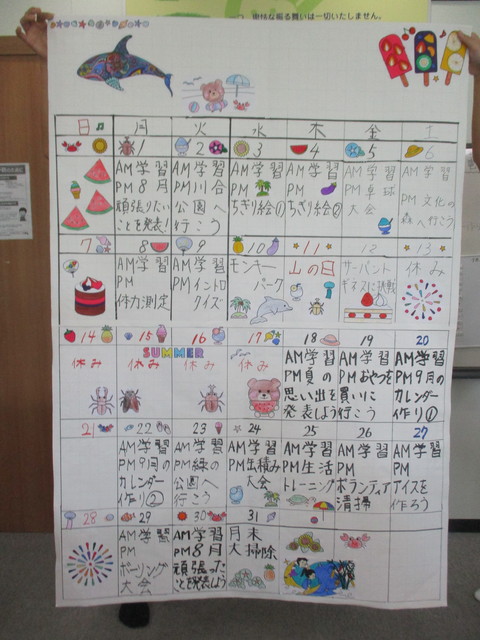 つ、衝枝な振る舞いは一切いたしません。
日 月 火 水 木 金 土
1 2 3 4 5 6
AM学習
PM8月
頑張りたい
ことを発表!
AM学習
PM川合
公園へ
行こう
AM学習
PM
ちぎり絵①
AM学習
PM
ちぎり絵②
AM学習
PM卓球
大会
AM学習
PM文化の
森へ行こう
7 8 9 10 11 12 13
AM学習
PM
体力測定
AM学習
PMイントロ
クイズ
モンキー
パーク
山の日
サーバント
ギネスに挑戦
休み
14 15 16 17 18 19 20
SUMMER
休み
休み
休み
休み
AM学習
PM夏の
思い出を
発表しよう
AM学習
PMおやつを
買いに
行こう
AM学習
PM9月の
カレンダー
作り①
21 22 23 24 25 26 27
AM学習
PM9月の
カレンダー
作り②
AM学習
PM緑の
公園へ
行こう
AM学習
PM缶積み
大会
AM学習
PM生活
トレーニング
AM学習
PM
ボランティア
清掃
AM学習
PM
アイスを
作ろう
28 29 30 31
AM学習
PM
ボーリング
大会
AM学習
PM8月
頑張った
ことを発表しよう
月末
大掃除